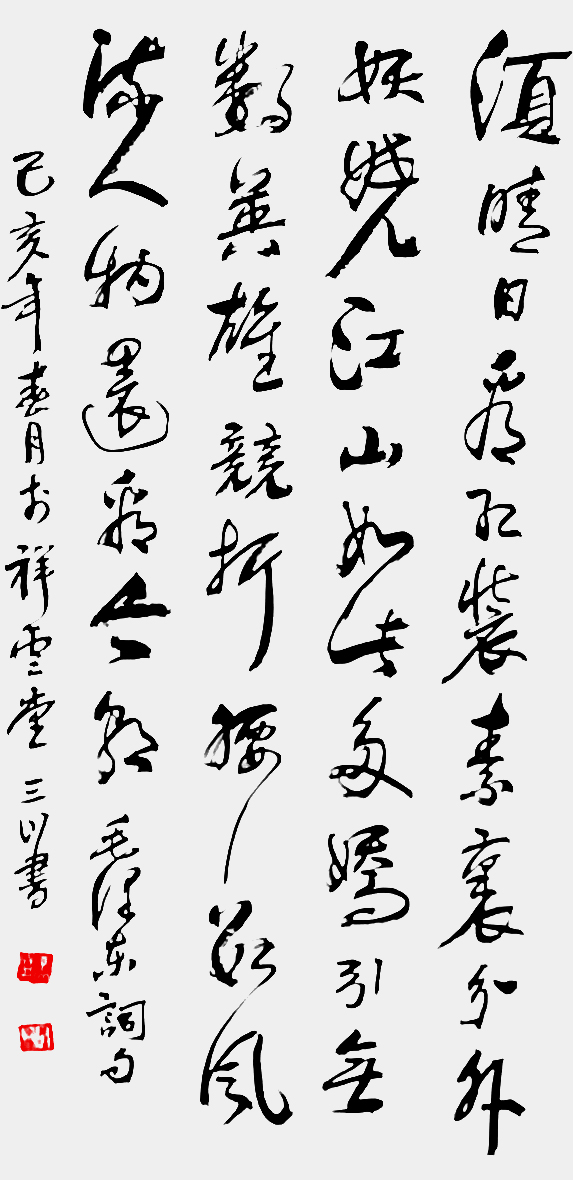 須晴日看紅裝素裹分外
妖嬈江山如此多嬌引無
數英雄競折腰數風
流人物還看今朝 毛澤東詞句
己亥年春月於祥雲堂三川書